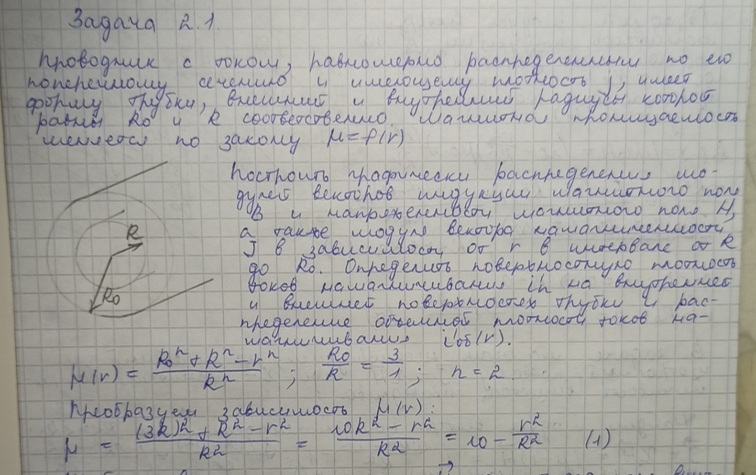 Задача 2.1.
Проводник с током, равномерно распределенным по его
поперечному сечению и имеющему плотность j, имеет
форму трубки, внешний и внутренний радиусы которой
равны R0 и R соответственно. Магнитная проницаемость
меняется по закону μ=f(r)
Построить графически распределения мо-
дулей векторов индукции магнитного поля
B и напряженности магнитного поля H,
а также модуля вектора намагниченности
J в зависимости от r в интервале от R
до R0. Определить поверхностную плотность
токов намагничивания iн на внутренней
и внешней поверхностях трубки и рас-
пределение объемной плотности токов на-
магничивания iоб(r).
R
R0
μ(r) = (R0^n + R^n - r^n) / R^n ; R0/R = 3/1 ; n = 2
Преобразуем зависимость μ(r):
μ = ((3R)^2 + R^2 - r^2) / R^2 = (10R^2 - r^2) / R^2 = 10 - r^2/R^2 (1)